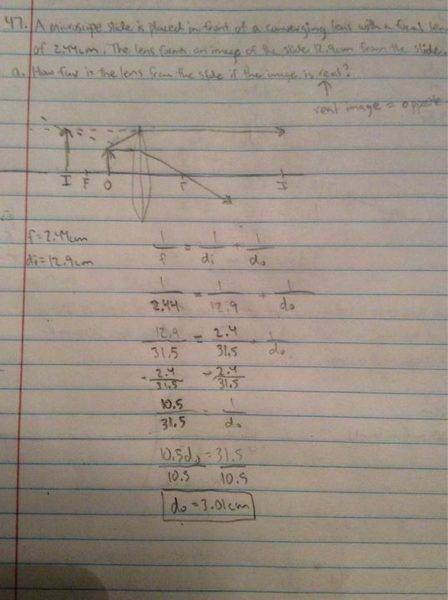 47. A microscope slide is placed in front of a converging lens with a focal len
of 2.44cm. The lens forms an image of the slide 12.9cm from the slide.
a. How far is the lens from the slide if the image is real?
real image = opposite
I F O F I
f=2.44cm
di=12.9cm
1/f = 1/di + 1/do
1/2.44 = 1/12.9 + 1/do
12.9/31.5 = 2.4/31.5 + 1/do
-2.4/31.5 -2.4/31.5
10.5/31.5 = 1/do
10.5do = 31.5
10.5 10.5
do = 3.01cm